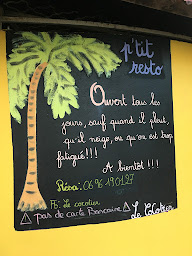 p'tit
resto
Ouvert tous les
jours, sauf quand il pleut,
qu'il neige, ou qu'on est trop
fatigué!!!
A bientôt !!!
Résa: 06 96 19 01 27
Fb: Le cocotier
⚠ pas de carte Bancaire ⚠
Le Cocotier